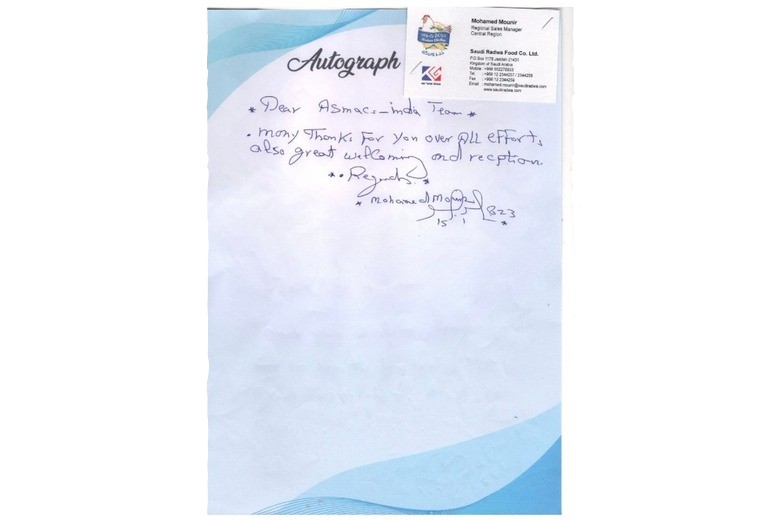 Autograph
Mohamed Mounir
Regional Sales Manager
Central Region
Saudi Radwa Food Co. Ltd.
P.O Box 1178 Jeddah 21431
Kingdom of Saudi Arabia
Mobile
Tel.
Fax
Email : mohamed.mounir@saudiradwa.com
www.saudiradwa.com
* Dear Asmacs-india Team *
. many Thanks For You over ALL efforts,
also great welcoming and recption
* . Regards. *
* Mohamed Mounir